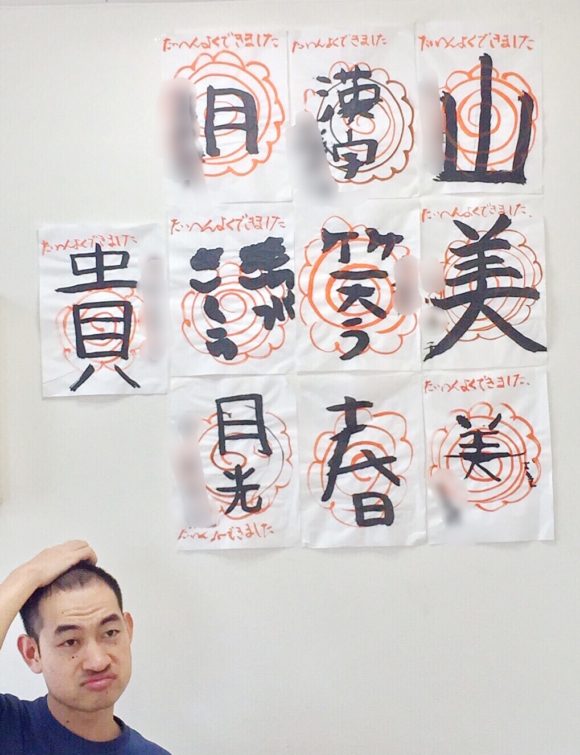 たいへんよくできました
月
たいへんよくできました
漢字
たいへんよくできました
山
たいへんよくできました
貴
たいへんよくできました
こころ
笑う
たいへんよくできました。
美
月光
たいへんよくできました
春
たいへんよくできました。
美